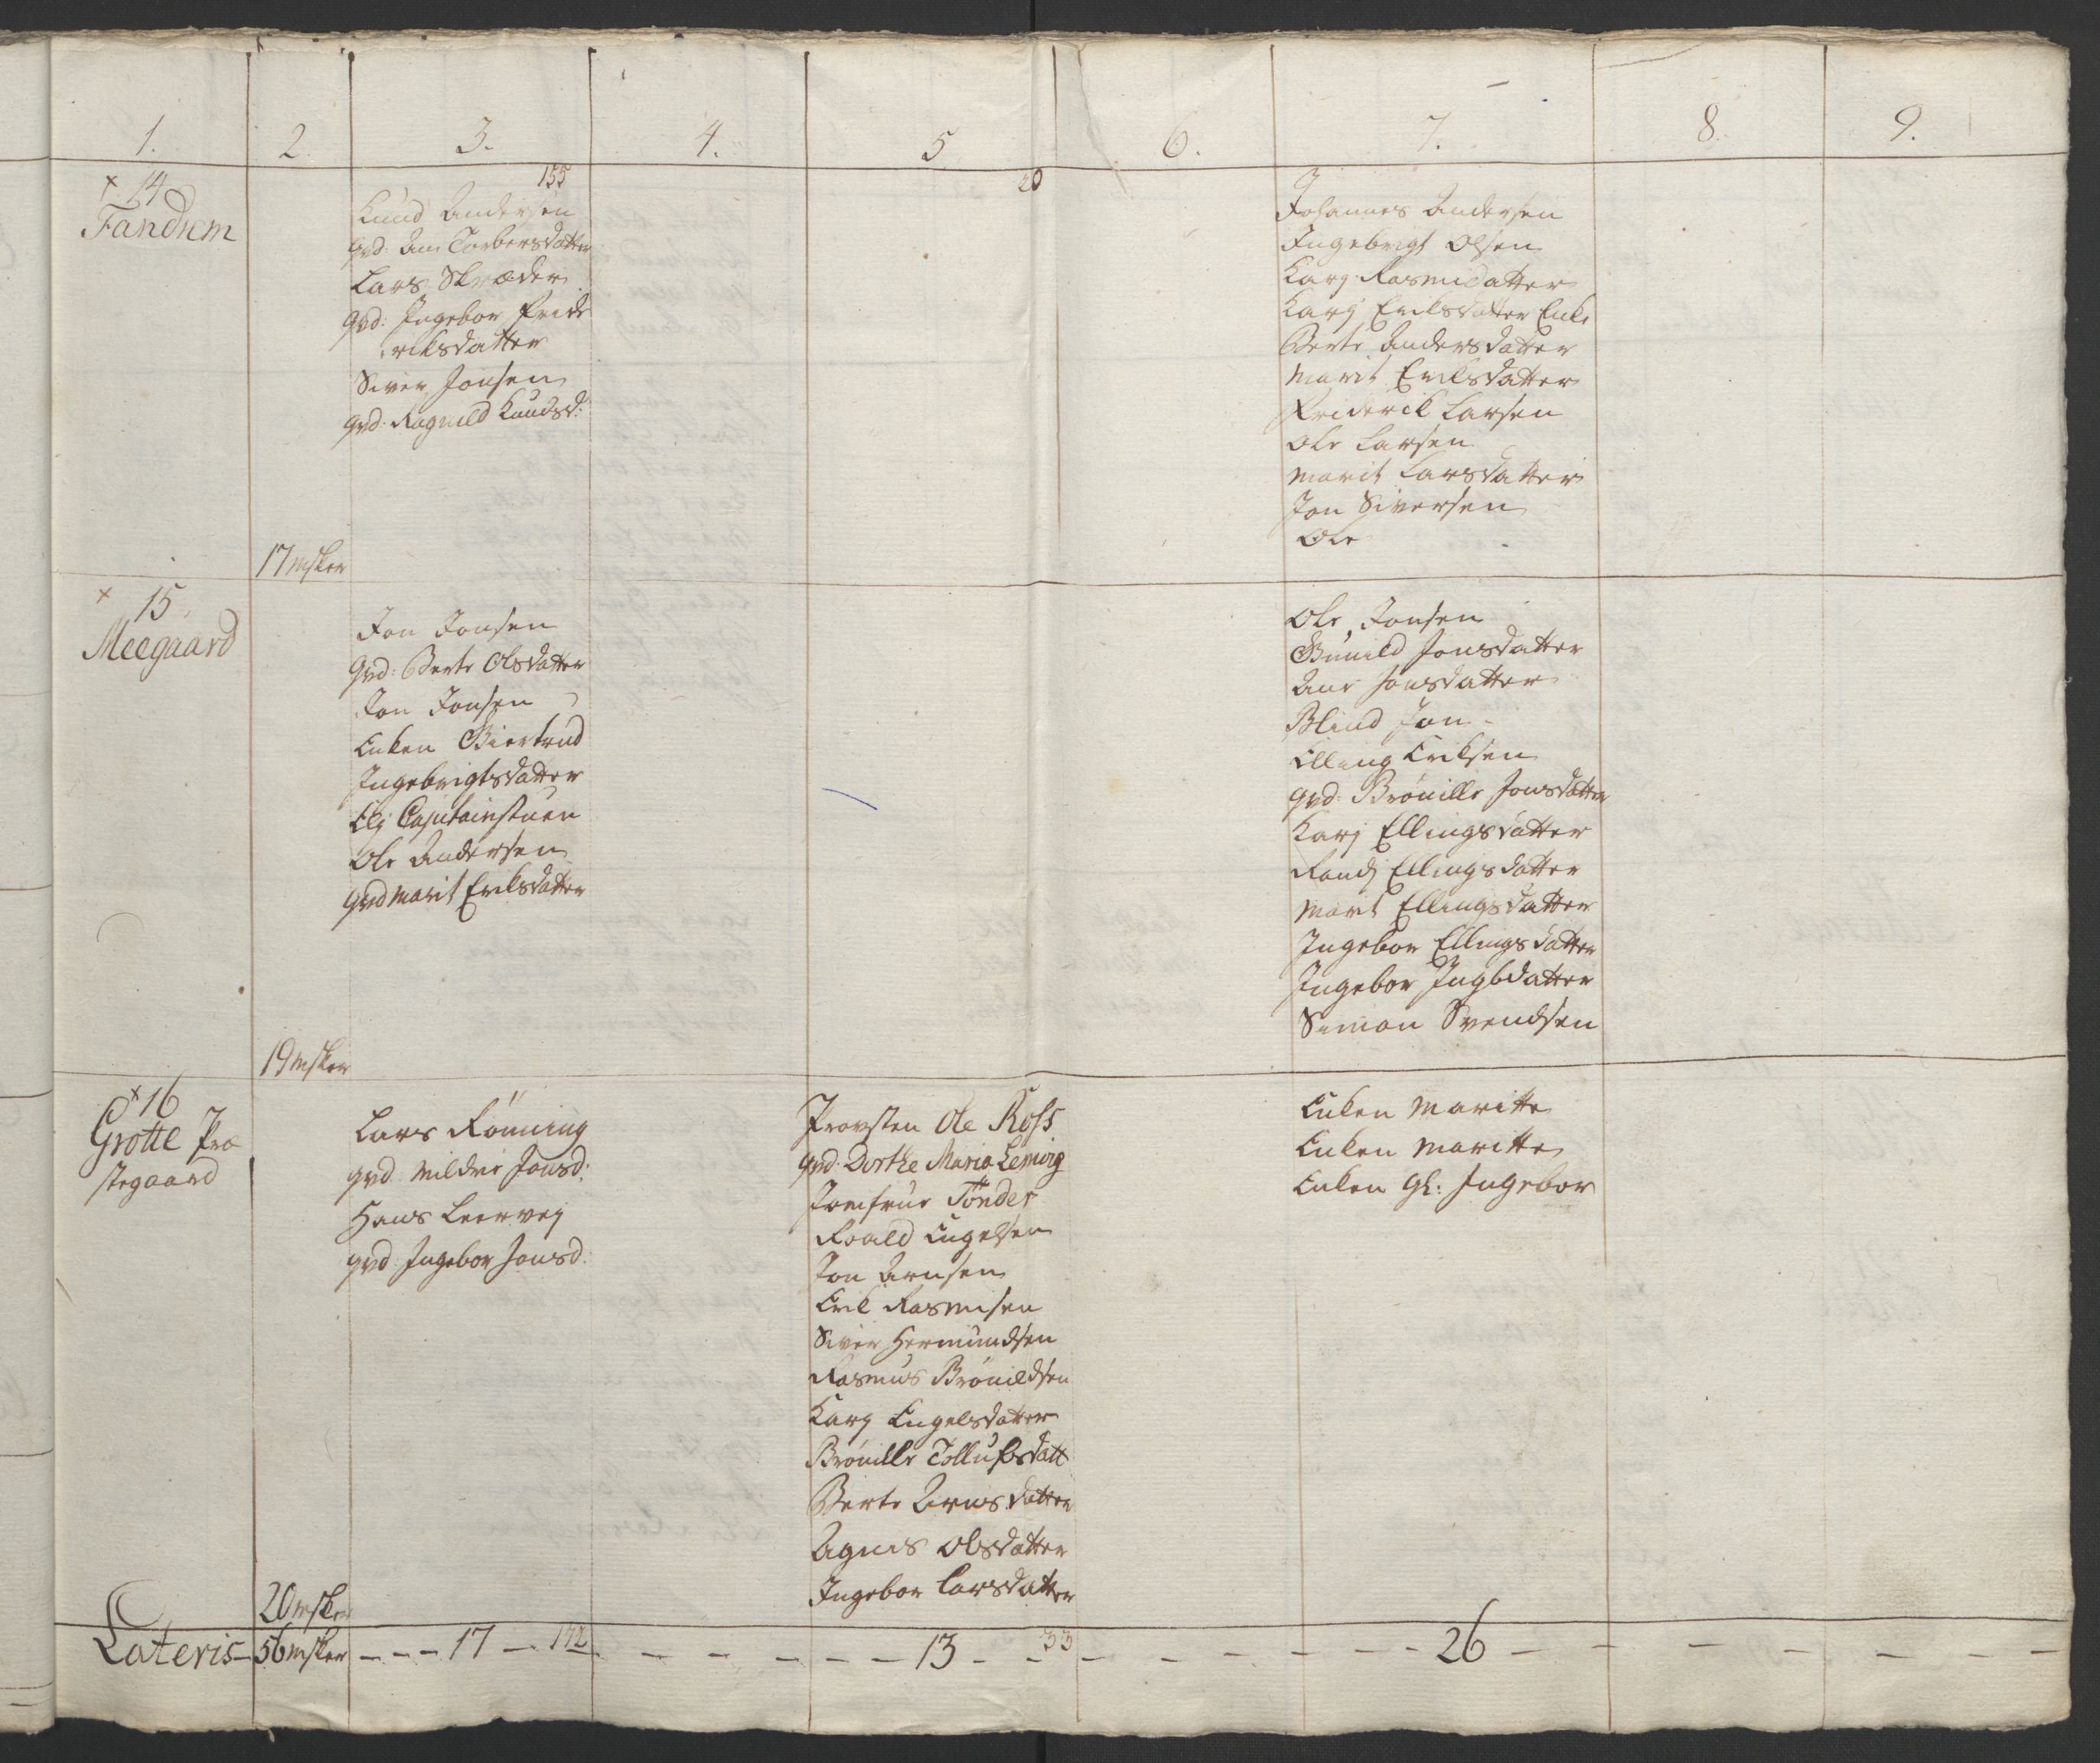 1.
2
3.
4.
5
6.
7.
8.
9.
x 14
Fandrem
17 msker
155
Knud Andersen
qvd: Ane Torbersdatter
Lars Skræder
qvd: Ingebor Fride
riksdatter
Siver Jonsen
qvd: Ragnild Knudsd:
20
Johannes Andersen
Ingebrigt Olsen
Karj Rasmusdatter
Karj Eriksdatter Enke
Berte Andersdatter
Marit Eriksdatter
Friderik Larsen
Ole Larsen
Marit Larsdatter
Jon Siversen
Ole
x 15
Meegaard
19 msker
Jon Jonsen
qvd: Berte Olsdatter
Jon Jonsen
Enken Giertrud
Ingebrigtsdatter
Elj Capitainstuen
Ole Andersen
qvd Marit Eriksdatter
Ole Jonsen
Gunild Jonsdatter
Ane Jonsdatter
Blind Jon
Elling Eriksen
qvd: Brønille Jonsdatter
Karj Ellingsdatter
Randj Ellingsdatter
Marit Ellingsdatter
Ingebor Ellingsdatter
Ingebor Ingbdatter
Simon Svendsen
x 16
Grotte Præ
stegaard
20 msker
Lars Rønning
qvd Mildrie Jonsd:
Hans Leervej
qvd: Ingebor Jonsd:
Provsten Ole Ross
qvd: Dorthe Maria Lemvig
Jomfrue Tønder
Roald Engelsen
Jon Arnsen
Erik Rasmisen
Siver Hermundsen
Rasmus Brønildsen
Karj Engelsdatter
Brønille Tollufsdatt
Berte Arnsdatter
Agnes Olsdatter
Ingebor Larsdatter
Enken Maritte
Enken Maritte
Enken Gl: Ingebor
Lateris 56 msker - - - 17 - 172 - - - - - 13 - - 33 - - - - - - 26 - - - - - - -